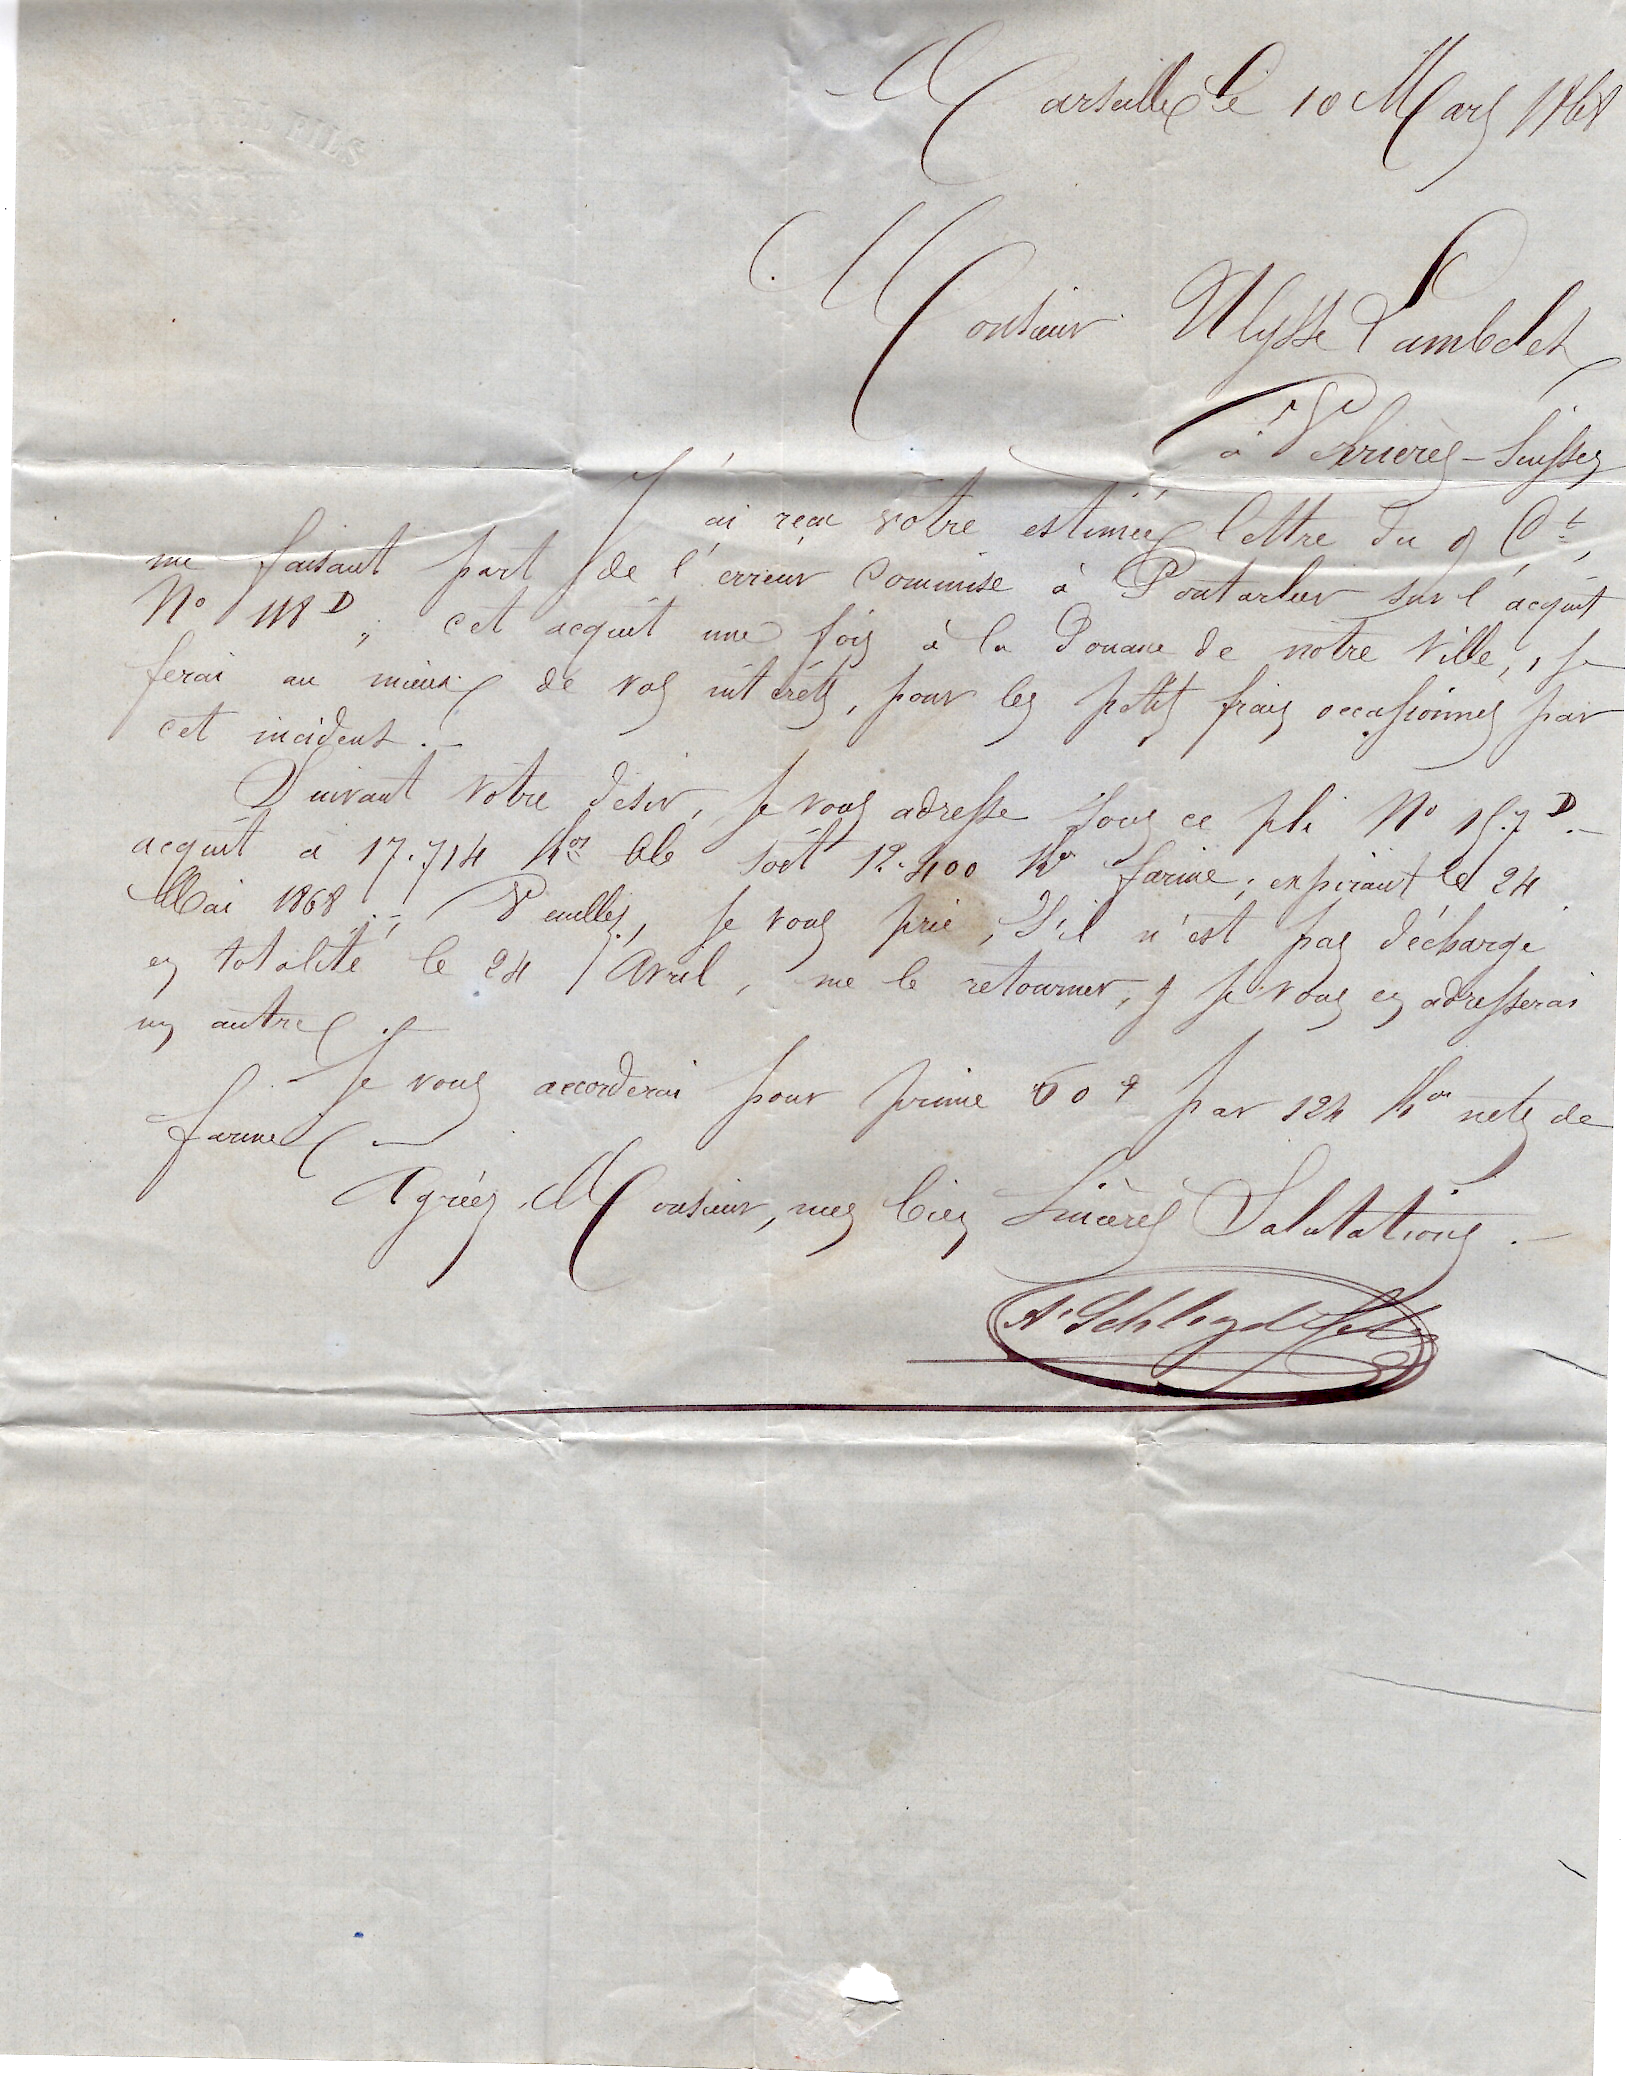 FILS
Marseille le 10 Mars 1868
Monsieur Ulysse Lambelet
à Verrières-Suisses
J'ai reçu votre estimée lettre du 9 Ct,
me faisant part de l'erreur commise à Pontarlier sur l'acquit
No 118 D; cet acquit une fois à la Douane de notre ville, je
ferai au mieux de vos intérêts, pour les petits frais occasionnés par
cet incident.—
Suivant votre désir, je vous adresse sous ce pli No 157 D.—
acquit à 17.714 Kos blé soit 12.400 Kos farine; expirant le 24
Mai 1868.— Veuillez, je vous prie, s'il n'est pas déchargé
en totalité le 24 Avril, me le retourner, & je vous en adresserai
un autre.—
Je vous accorderai pour prime 60 c par 124 Kos nets de
farine.—
Agréez, Monsieur, mes bien sincères Salutations.—